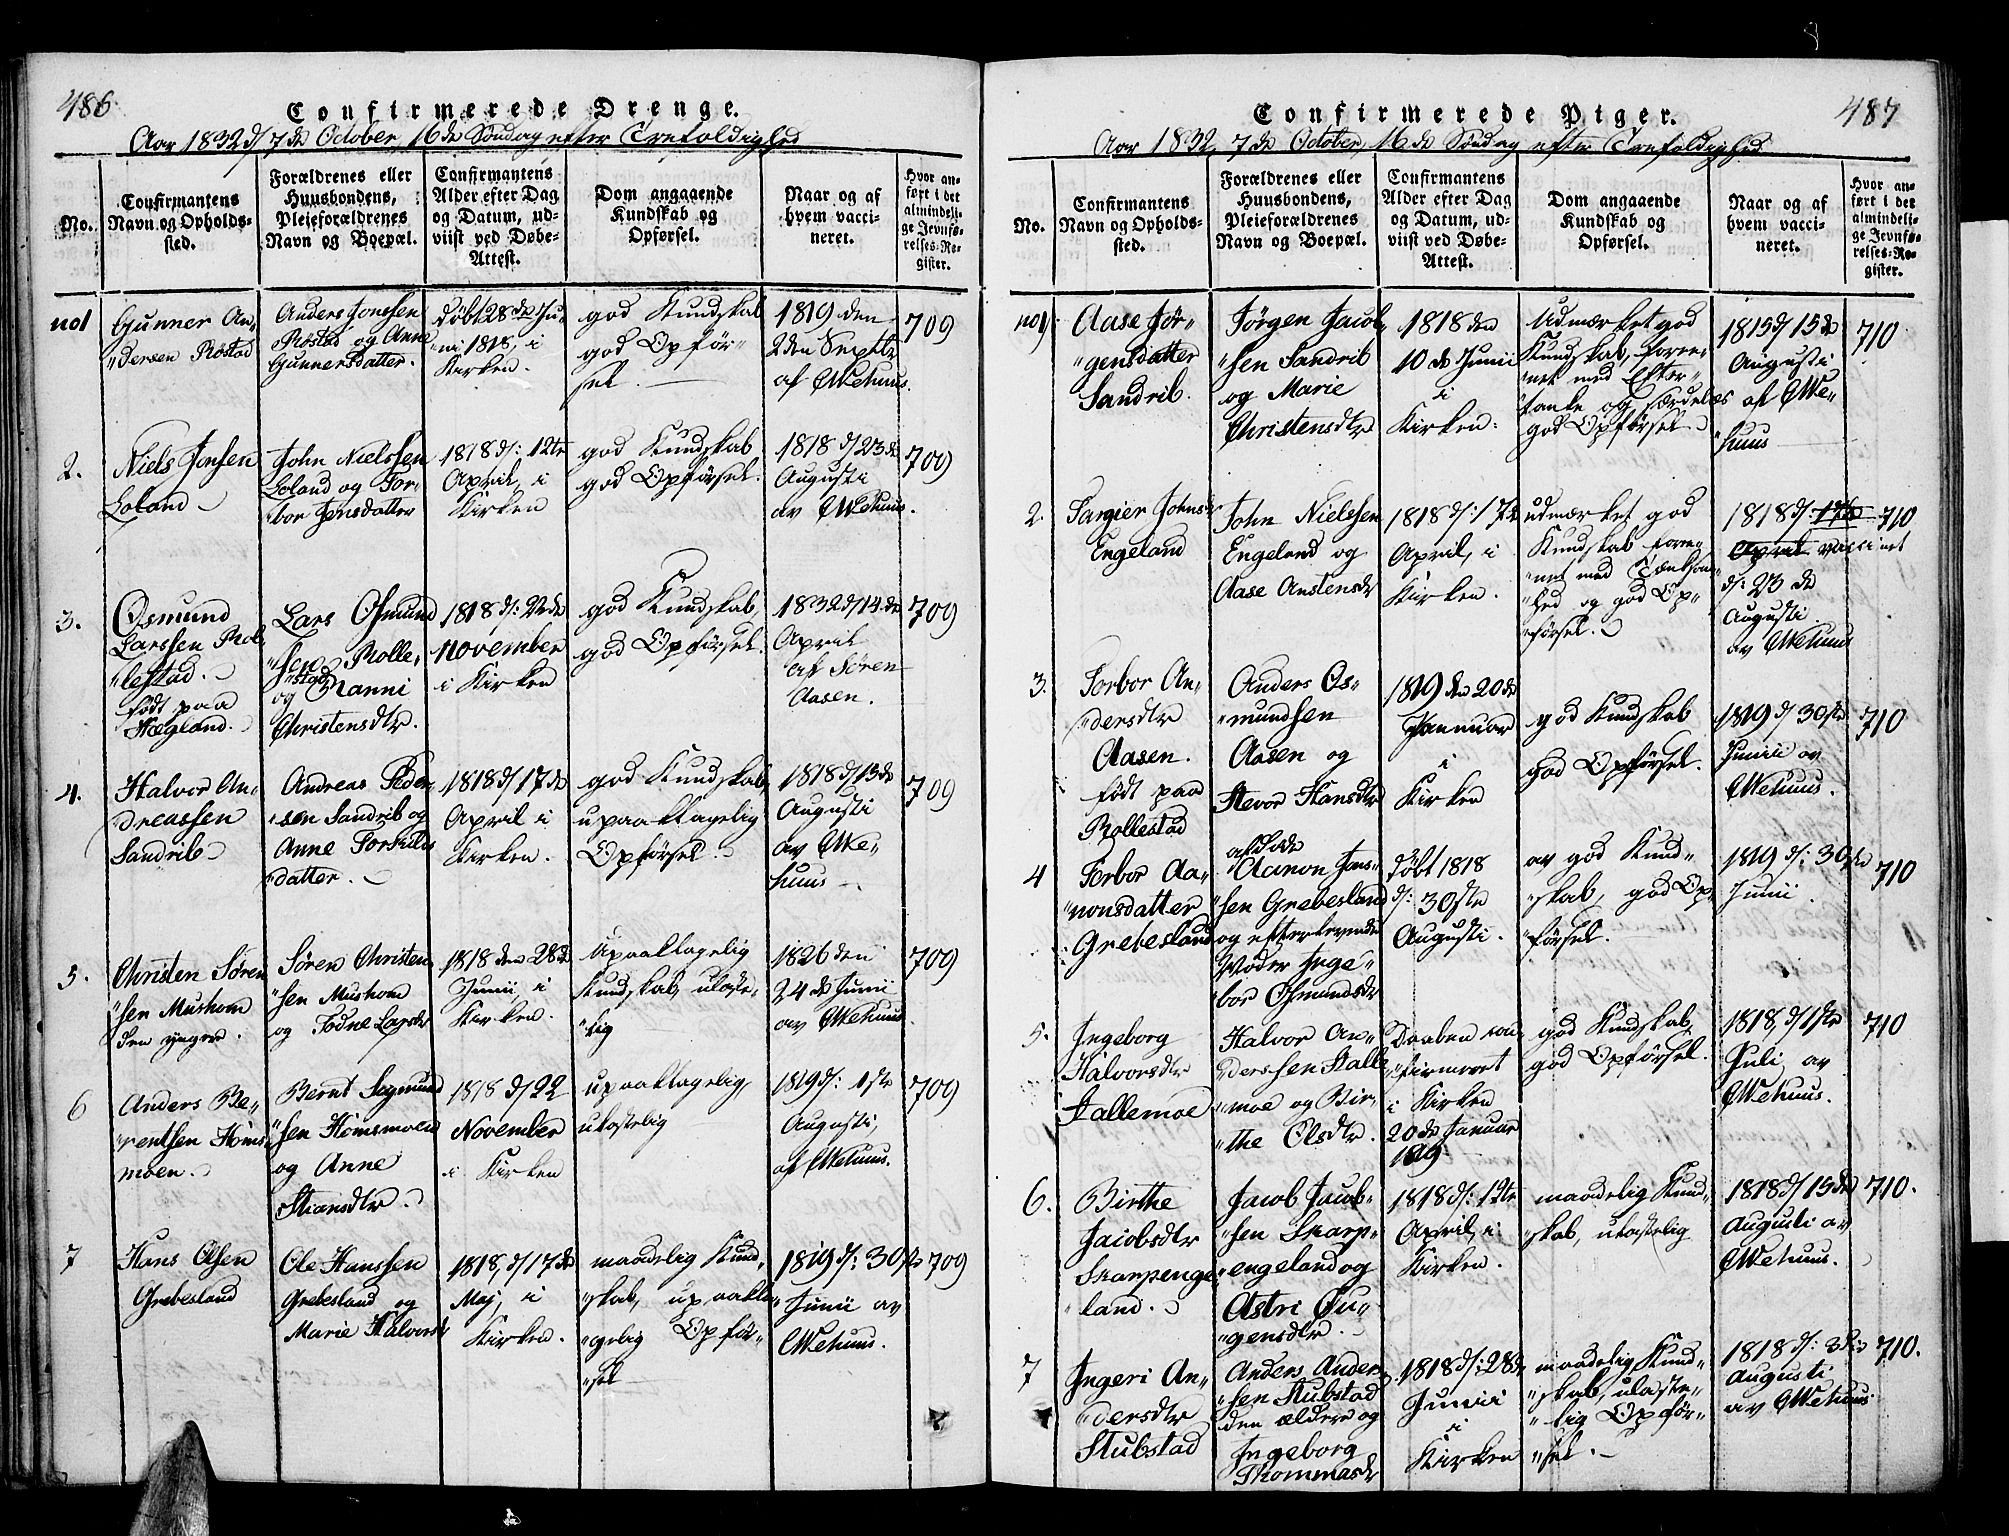 486
Confirmerede Drenge.
Aar 1832 d/ 7de October, 16de Søndag efter Trefoldighed
No.
Confirmantens
Navn og Opholds-
sted.
Forældrenes eller
Huusbondens,
Pleieforældrenes
Navn og Boepæl.
Confirmantens
Alder efter Dag
og Datum, ud-
viist ved Døbe-
Attest.
Dom angaaende
Kundskab og
Opførsel.
Naar og af
hvem vacci-
neret.
Hvor an-
ført i det
almindeli-
ge Jevnfø-
relses-Re-
gister.
no1
Gunner An-
"dersen Røstad
Anders Jonssen
Røstad og Anne
Gunnersdatter.
døbt 28de Ju-
"ni 1818, i
Kirken.
god Kundskab
god Opfør-
sel.
1819 den
2den Septbr
af CWehuus.
709
2.
Niels Jonsen
Loland
John Nielssen
Loland og Tor-
"bor Jensdatter
1818 d: 12te
April, i
Kirken
god Kundskab
god Opførsel.
1818 d/ 23de
Augusti
av CWehuus.
709
3.
Osmund
Larssen Rol-
"lestad.
født paa
Hægland.
Lars Osmund
"sen Rolle-
stad
og Ranni
Christensdtr.
1818 d: 22de
November
i Kirken
god Kundskab,
god Opførsel.
1832 d/ 14de
April
af Søren
Aasen.
709
4.
Halvor An-
"dreassen
Sandrib
Andreas Peder-
"sen Sandrib og
Anne Torkilds
datter.
1818 d/ 17de
April i
Kirken.
god Kundskab,
upaaklagelig
Opførsel.
1818 d/ 15de
Augusti
av CWe-
huus
709
5.
Christen Søren
"sen Mushom
den yngre.
Søren Christen
"sen Mushom
og Todne Larsdr
1818 den 28de
Junii, i
Kirken.
Upaaklagelig
Kundskab, ulaste-
"lig
1826 den
24de Junii
av CWehuus
709
6
Anders Be-
"rentsen Homs
moen.
Bernt Sigmund
"sen Homsmoen
og Anne
Stiansdtr.
1818 d/ 22
November
i Kirken
upaaklagelig,
ulastelig
1819 d: 1ste
Augusti,
af CWehuus.
709
7
Hans Olsen
Grebesland
Ole Hanssen
Grebesland og
Marie Halvorsdr
1818, d/ 17de
Maj, i
Kirken.
maadelig Kund-
"skab, upaakla-
"gelig Opfør-
"sel
1819 d: 30te
Junii av
CWehuus.
709
487
Confirmerede Piger.
Aar 1832, 7de October, 16de Søndag efter Trefoldighed
No.
Confirmantens
Navn og Opholds-
sted.
Forældrenes eller
Huusbondens,
Pleieforældrenes
Navn og Boepæl.
Confirmantens
Alder efter Dag
og Datum, ud-
viist ved Døbe-
Attest.
Dom angaaende
Kundskab og
Opførsel.
Naar og af
hvem vacci-
neret.
Hvor an-
ført i det
almindeli-
ge Jevnfø-
relses-Re-
gister.
no1
Aase Jør-
"gensdatter
Sandrib.
Jørgen Jacob-
"sen Sandrib
og Marie
Christensdtr
1818 den
10de Junii
i
Kirken.
Udmærket god
Kundskab, foree-
"net med Efter-
"tanke og særdeles
god Opførsel
1815 d/ 15de
Augusti
af CWe-
"huus
710
2.
Targier Johnsdr
Engeland
John Nielssen
Engeland og
Aase Anstensdr
1818 d: 17de
April, i
Kirken.
udmærket god
Kundskab foree-
"net med Tænksom-
"hed og god Op-
"førsel.
1818 d: 17de
April vaccinet
d: 23de
Augusti
av CWehuus
710
3.
Torbor An-
"dersdtr
Aasen.
født paa
Rollestad
Anders Os-
"mundsen
Aasen og
Stevor Hansdtr
1819 den 20de
Januar
i
Kirken
god Kundskab
god Opførsel.
1819 d/ 30te
Junii av
CWehuus.
710
4
Torbor Aa-
"nonsdatter
Grebesland
afdøde
Aanon Jens-
"sen Grebesland
og efterlevende
Moder Inge-
"bor Osmundsdr
døbt 1818
d: 30ste
Augusti.
av god Kund-
"skab, god Op-
"førsel.
1819 d: 30te
Junii.
710
5.
Ingeborg
Halvorsdtr
Tallemoe
Halvor An-
"derssen Talle
"moe og Bir-
"the Olsdtr.
Daaben con-
"firmeret
i Kirken
20de Januar
1819
god Kundskab,
god Opførsel.
1818, d/ 1ste
Juli, av
CWehuus.
710
6.
Birthe
Jacobsdtr
Skarpenge-
"land.
Jacob Jacob-
"sen Skarp-
"engeland og
Astri Ou-
"gensdtr.
1818 d: 12te
April, i
Kirken.
maadelig Kund-
"skab, ulastelig
1818 d/ 15de
Augusti av
CWehuus.
710.
7
Ingeri An-
"dersdtr
Stubstad
Anders Ander-
"sen Stubstad
den ældere og
Ingeborg
Thommasdr
1818 d: 28de
Junii
i
Kirken
maadelig Kund-
"skab, ulaste-
"lig Opfør-
"sel.
1818 d: 3die
Augusti
av CWehuus
710.